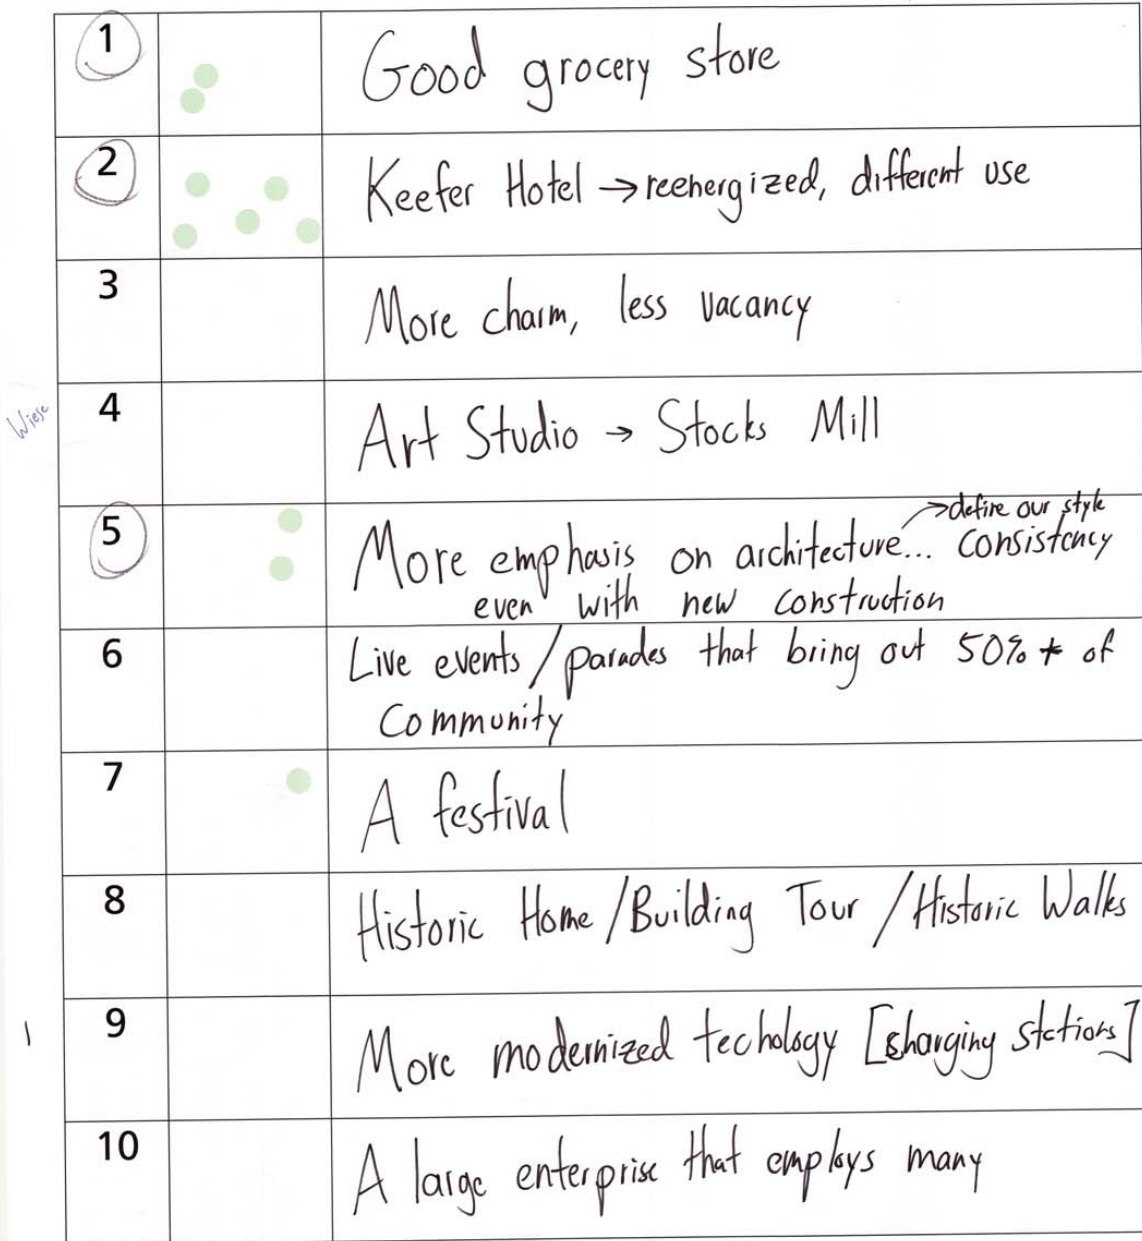 1 Good grocery store
2 Keefer Hotel → reenergized, different use
3 More charm, less vacancy
Wiese 4 Art Studio → Stocks Mill
→ define our style
5 More emphasis on architecture... consistency
even with new construction
6 Live events / parades that bring out 50% + of
Community
7 A festival
8 Historic Home / Building Tour / Historic Walks
9 More modernized techology [charging stations]
10 A large enterprise that employs many